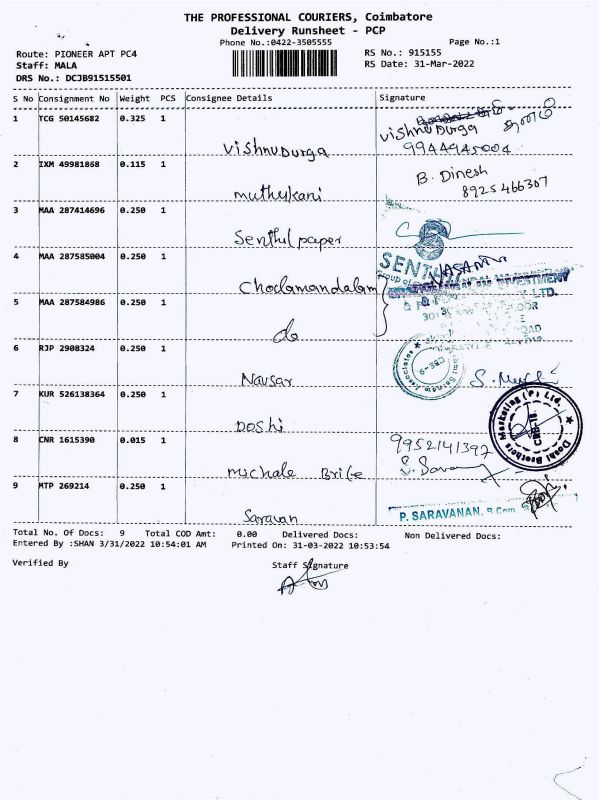 THE PROFESSIONAL COURIERS, Coimbatore
Delivery Runsheet - PCP
Phone No.:0422-3505555 Page No.:1
Route: PIONEER APT PC4 RS No.: 915155
Staff: MALA RS Date: 31-Mar-2022
DRS No.: DCJB91515501
S No Consignment No Weight PCS Consignee Details Signature
1 TCG 50145682 0.325 1 VishnuDurga VishnuDurga
9944945004
2 IXM 49981868 0.115 1 muthukani B. Dinesh
8925466307
3 MAA 287414696 0.250 1 Senthil paper
4 MAA 287585004 0.250 1 Cholamandalam
5 MAA 287584986 0.250 1 do
6 RJP 2908324 0.250 1 Navsar
7 KUR 526138364 0.250 1 Doshi
Doshi Brothers Marketing (P) Ltd. CBE-18
8 CNR 1615390 0.015 1 michale Brite 9952141397
9 MTP 269214 0.250 1 Saravan P. SARAVANAN, B.Com.
Total No. Of Docs: 9 Total COD Amt: 0.00 Delivered Docs: Non Delivered Docs:
Entered By :SHAN 3/31/2022 10:54:01 AM Printed On: 31-03-2022 10:53:54
Verified By Staff Signature